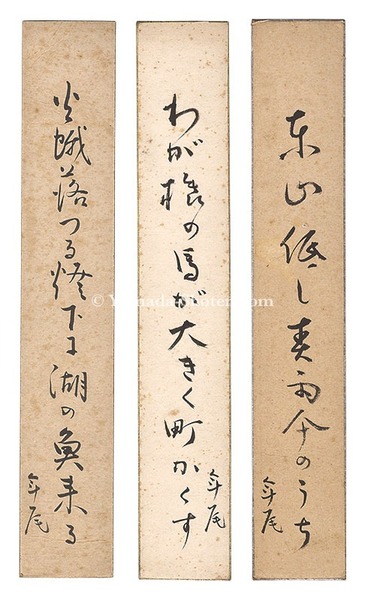 東山低し春雨傘のうち
年尾
わが橇の馬が大きく町かくす
年尾
火蛾落つる燈下に湖の魚来る
年尾
© Yamada-Shoten.com